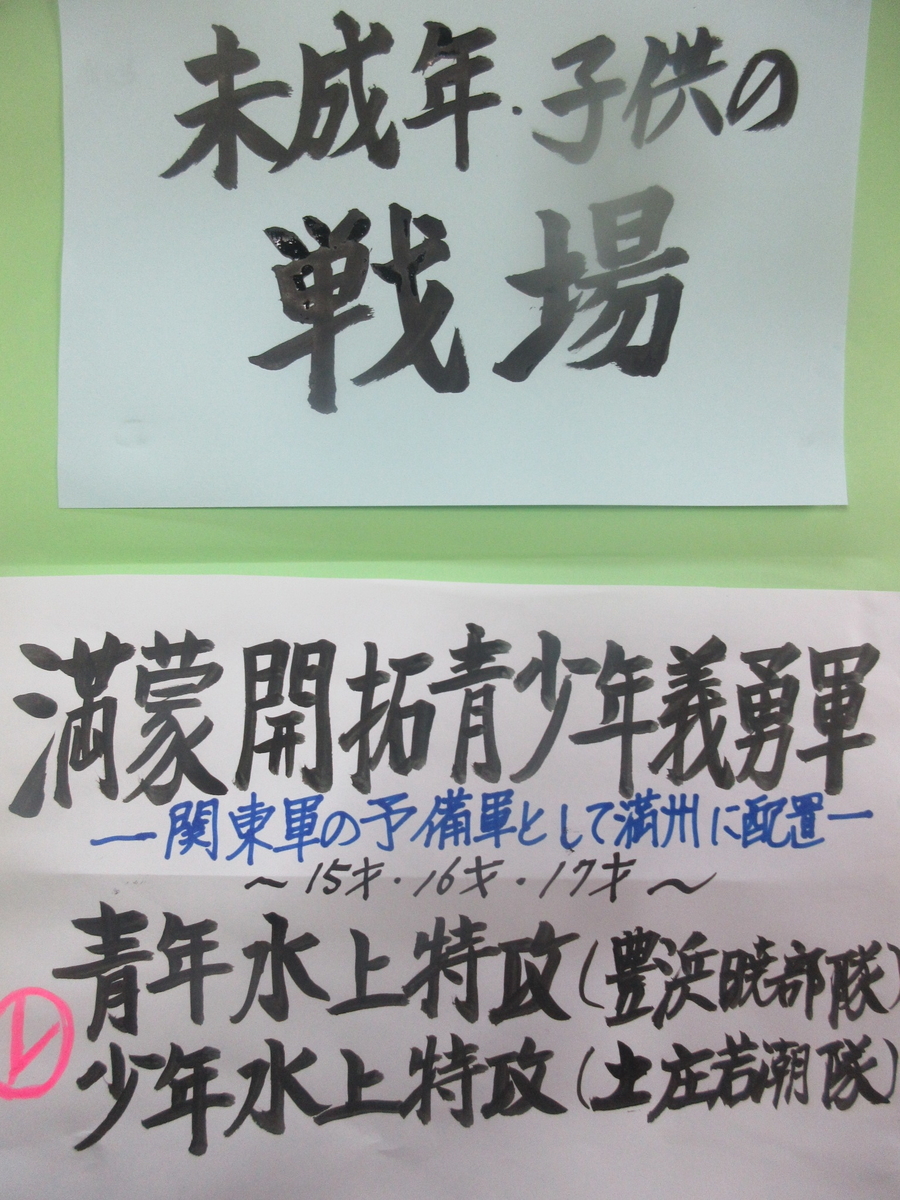 未成年・子供の
戦場
満蒙開拓青少年義勇軍
ー関東軍の予備軍として満州に配置ー
～15才・16才・17才～
青年水上特政(豊浜暁部隊)
㋹
少年水上特政(土庄若潮隊)